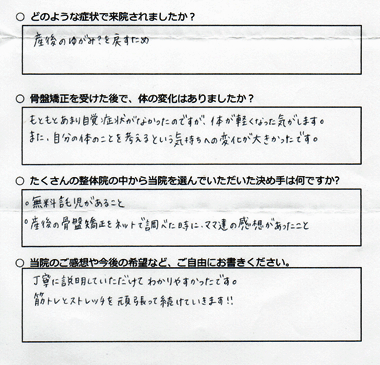 ○ どのような症状で来院されましたか？
産後のゆがみ？を戻すため
○ 骨盤矯正を受けた後で、体の変化はありましたか？
もともとあまり自覚症状がなかったのですが、体が軽くなった気がします。
また、自分の体のことを考えるという気持ちへの変化が大きかったです。
○ たくさんの整体院の中から当院を選んでいただいた決め手は何ですか？
○無料託児があること
○産後の骨盤矯正をネットで調べた時に、ママ達の感想があったこと
○ 当院のご感想や今後の希望など、ご自由にお書きください。
丁寧に説明していただけてわかりやすかったです。
筋トレとストレッチを頑張って続けていきます!!